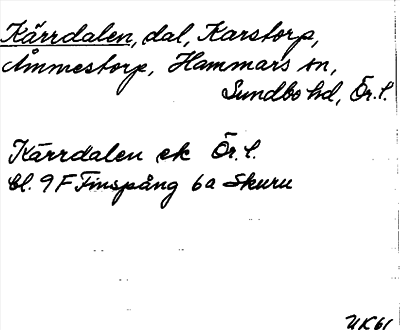 Kärrdalen, dal, Karstorp,
Åmmestorp, Hammars sn,
Sundbo hd, Ör. l.
Kärrdalen ek Ör. l.
bl. 9 F Finspång 6a Skuru
UK61